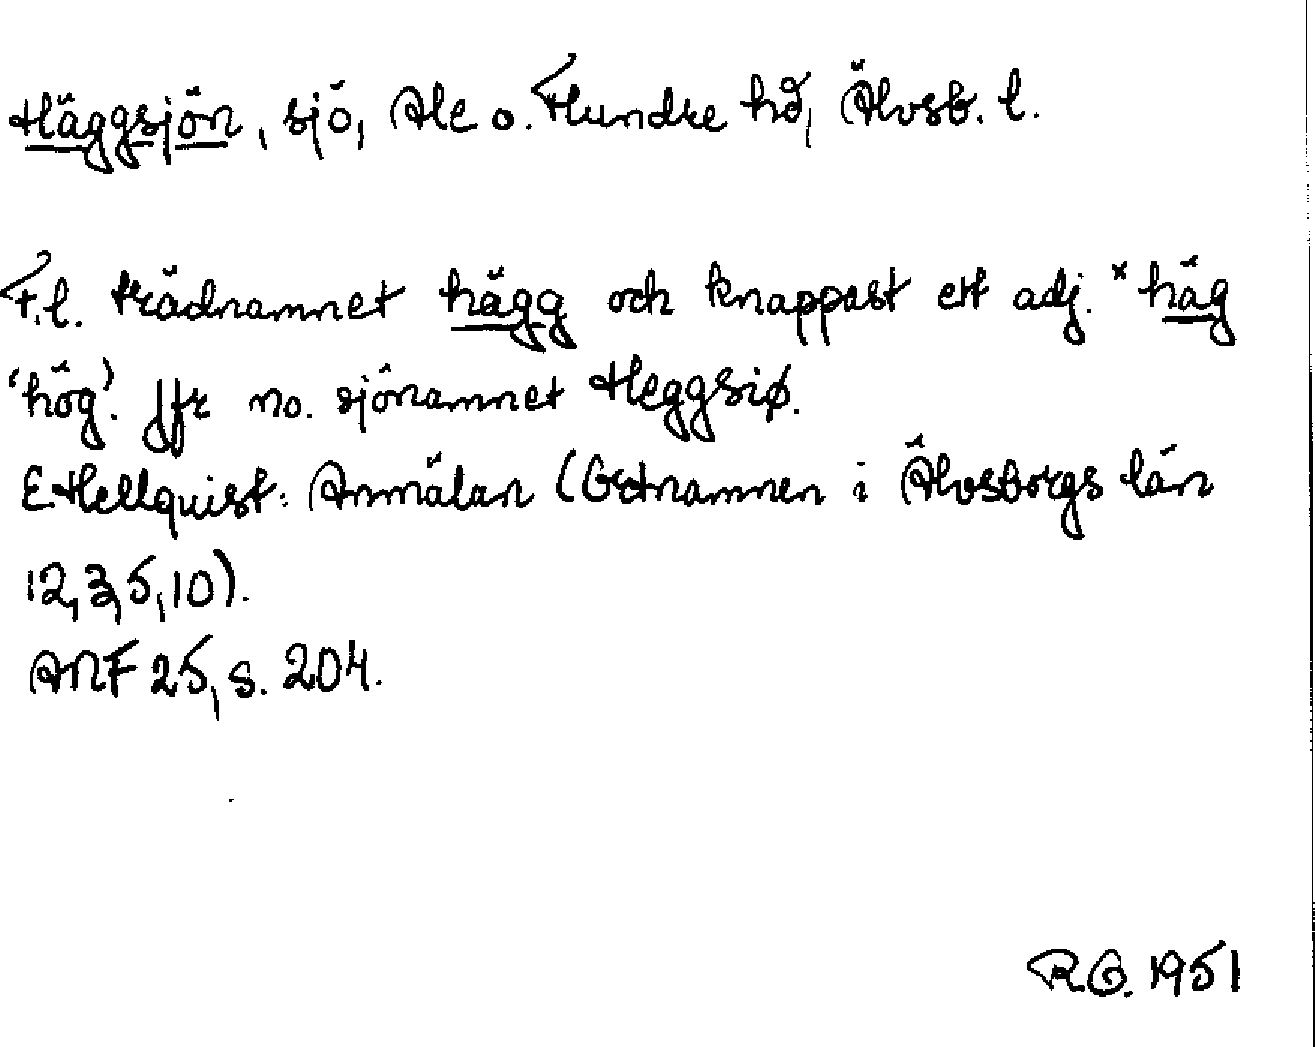 Häggsjön, sjö, Ale o. Flundre hd, Älvsb. l.
F.l. trädnamnet hägg och knappast ett adj. *häg
'hög'. Jfr no. sjönamnet Heggsiø.
E. Hellquist: Anmälan (Ortnamnen i Älvsborgs län
12,3,5,10).
ANF 25, s. 204.
R.G. 1951